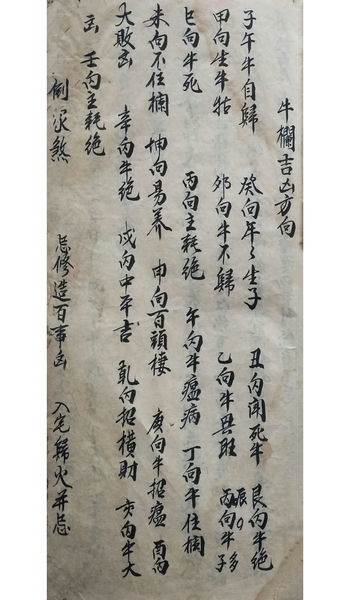 牛欄吉凶方向
子午牛自歸 癸向年々生子 丑向闲死牛 艮向牛絶
甲向生牛牯 夘向牛不歸 乙向牛興旺 丙向牛子多
巳向牛死 丙向主耗絶 午向牛瘟病 丁向牛住欄
未向不住欄 坤向易养 申向百頭棲 庚向牛招瘟 酉向
大敗凶 辛向牛絶 戌向中平吉 乾向招横財 亥向牛大
凶 壬向主耗絶
倒家煞 忌修造百事凶 入宅歸火并忌